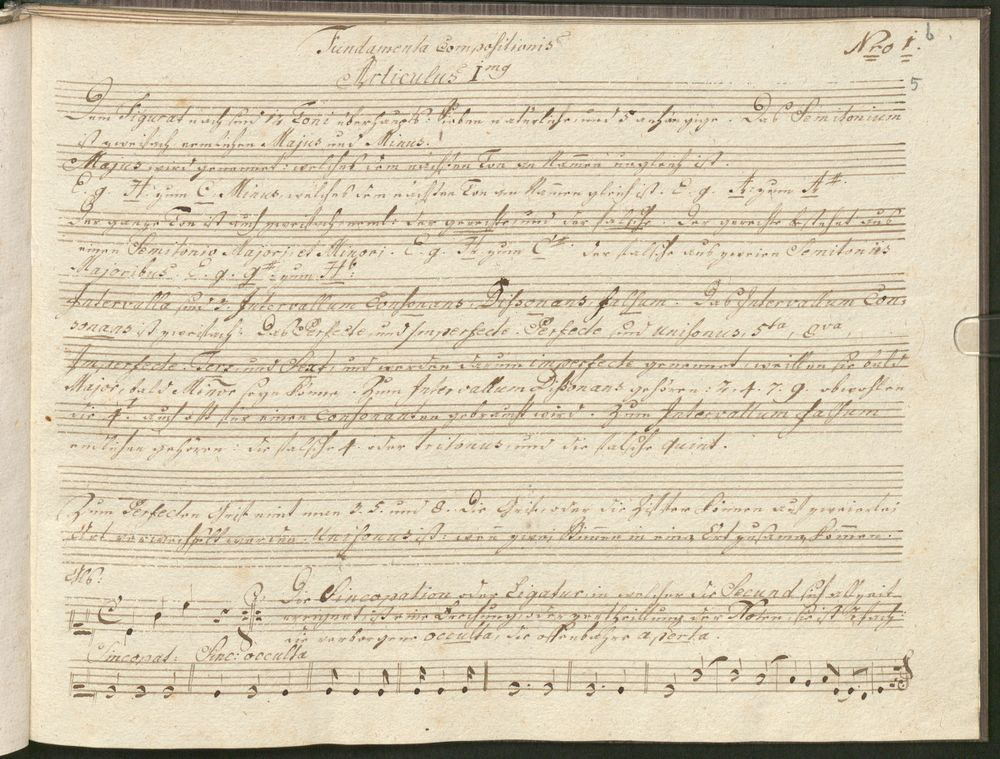 Fundamenta Compositionis
Nro 1.
6
Articulus Imus
5
Dem Figurat nach sind 12 Toni überhaupt: Sieben natürliche und 5 anhängige. Das Semitonium
ist zweifach, nemlichen Majus und Minus.
Majus wird genennet: welches dem nächsten Ton an Namen ungleich ist.
E. g. H: zum C. Minus, welches dem nächsten Ton am Namen gleich ist. E. g. A: zum A#.
Der ganze Ton ist auch zweifach: der gerechte und der falsche. Der gerechte bestehet aus
einem Semitonio Majori, et Minori. E. g. H zum C#. der falsche aus zweien Semitoniis
Majoribus. E. g. g# zum
Intervalla sind 3 Intervallum Consonans, Dissonans, falsum. Das Intervallum Con-
sonans ist zweifach: Das Perfecte und Imperfecte. Perfecte sind unisonus, 5ta, 8va,
Imperfecte: Terz und Sext, und werden darum imperfecte genennet, weillen sie bald
Major, bald Minor seyn könne. Zum Intervallum Dissonans gehören: 2. 4. 7. 9. obwohlen
die 4. auch oft für einen Consonanten gebraucht wird. Zum Intervallum falsum
endlichen gehören: die falsche 4. oder tritonus, und die falsche quint.
Zum Perfecten Grif nimt man 3. 5. und 8. Die Grife oder die Zifser können auf zweierlei
Art verwechselt werden. Unisonus ist: wenn zwei Stimmen in eins Ort zusamen kommen.
NB:
Die Sincopation oder Ligatur in welcher die Secund sich allzeit
ist eine und der Noten, sie ist 2fach
die verborgene occulta, die offenbahre aperta.
Sincopat: Sinc: occulta